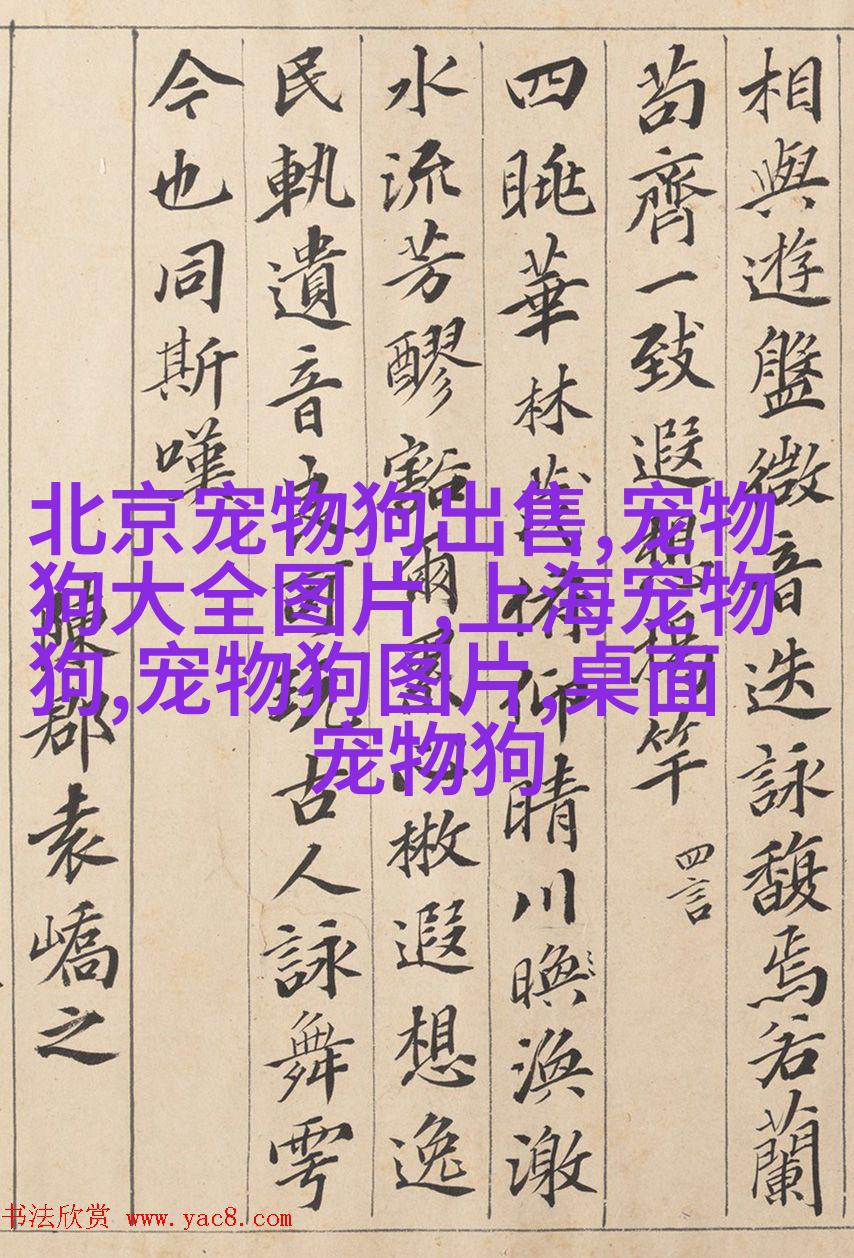 相與遊盤微音迭詠馥焉若蘭
苟齊一致遐想揭竿 四言
四眺華林茂俯仰晴川㬇渙激
水流芳醪豁爾累心散遐想逸
民軌遺音良可玩古人詠舞雩
今也同斯嘆
陳郡袁嶠之
北京宠物狗出售,宠物
狗大全图片,上海宠物
狗,宠物狗图片,桌面
宠物狗
书法欣赏 www.yac8.com